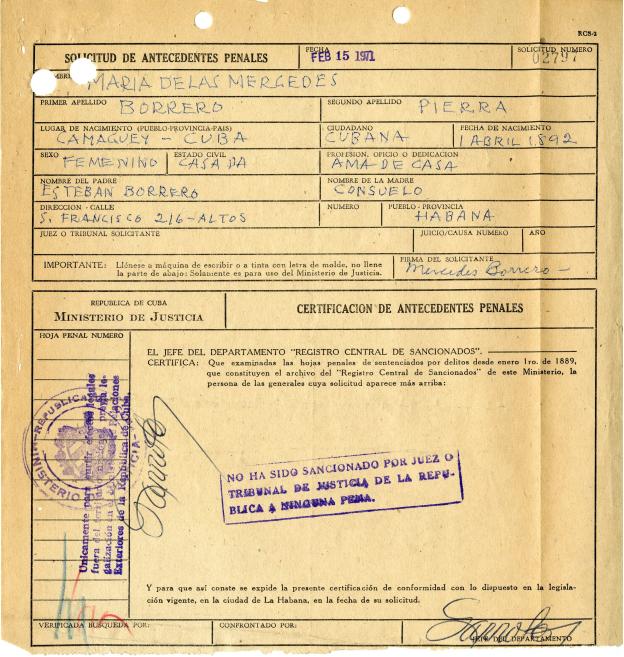 RCS-2
SOLICITUD DE ANTECEDENTES PENALES
FECHA
FEB 15 1971
SOLICITUD NUMERO
02797
MARIA DE LAS MERCEDES
PRIMER APELLIDO
BORRERO
SEGUNDO APELLIDO
PIERRA
LUGAR DE NACIMIENTO (PUEBLO-PROVINCIA-PAIS)
CAMAGUEY - CUBA
CIUDADANO
CUBANA
FECHA DE NACIMIENTO
1 ABRIL 1892
SEXO
FEMENINO
ESTADO CIVIL
CASADA
PROFESION, OFICIO O DEDICACION
AMA DE CASA
NOMBRE DEL PADRE
ESTEBAN BORRERO
NOMBRE DE LA MADRE
CONSUELO
DIRECCION - CALLE
S. FRANCISCO 216-ALTOS
NUMERO
PUEBLO - PROVINCIA
HABANA
JUEZ O TRIBUNAL SOLICITANTE
JUICIO/CAUSA NUMERO
AÑO
IMPORTANTE: Llénese a máquina de escribir o a tinta con letra de molde, no llene
la parte de abajo: Solamente es para uso del Ministerio de Justicia.
FIRMA DEL SOLICITANTE
Mercedes Borrero -
REPUBLICA DE CUBA
MINISTERIO DE JUSTICIA
CERTIFICACION DE ANTECEDENTES PENALES
HOJA PENAL NUMERO
EL JEFE DEL DEPARTAMENTO "REGISTRO CENTRAL DE SANCIONADOS".
CERTIFICA: Que examinadas las hojas penales de sentenciados por delitos desde enero 1ro. de 1889,
que constituyen el archivo del "Registro Central de Sancionados" de este Ministerio, la
persona de las generales cuya solicitud aparece más arriba:
Unicamente para surtir efectos legales
fuera del territorio nacional previa le-
galización en el Ministerio de Relaciones
Exteriores de la República de Cuba.
NO HA SIDO SANCIONADO POR JUEZ O
TRIBUNAL DE JUSTICIA DE LA REPU-
BLICA A NINGUNA PENA.
Y para que así conste se expide la presente certificación de conformidad con lo dispuesto en la legisla-
ción vigente, en la ciudad de La Habana, en la fecha de su solicitud.
VERIFICADA BUSQUEDA POR:
CONFRONTADO POR:
JEFE DEL DEPARTAMENTO